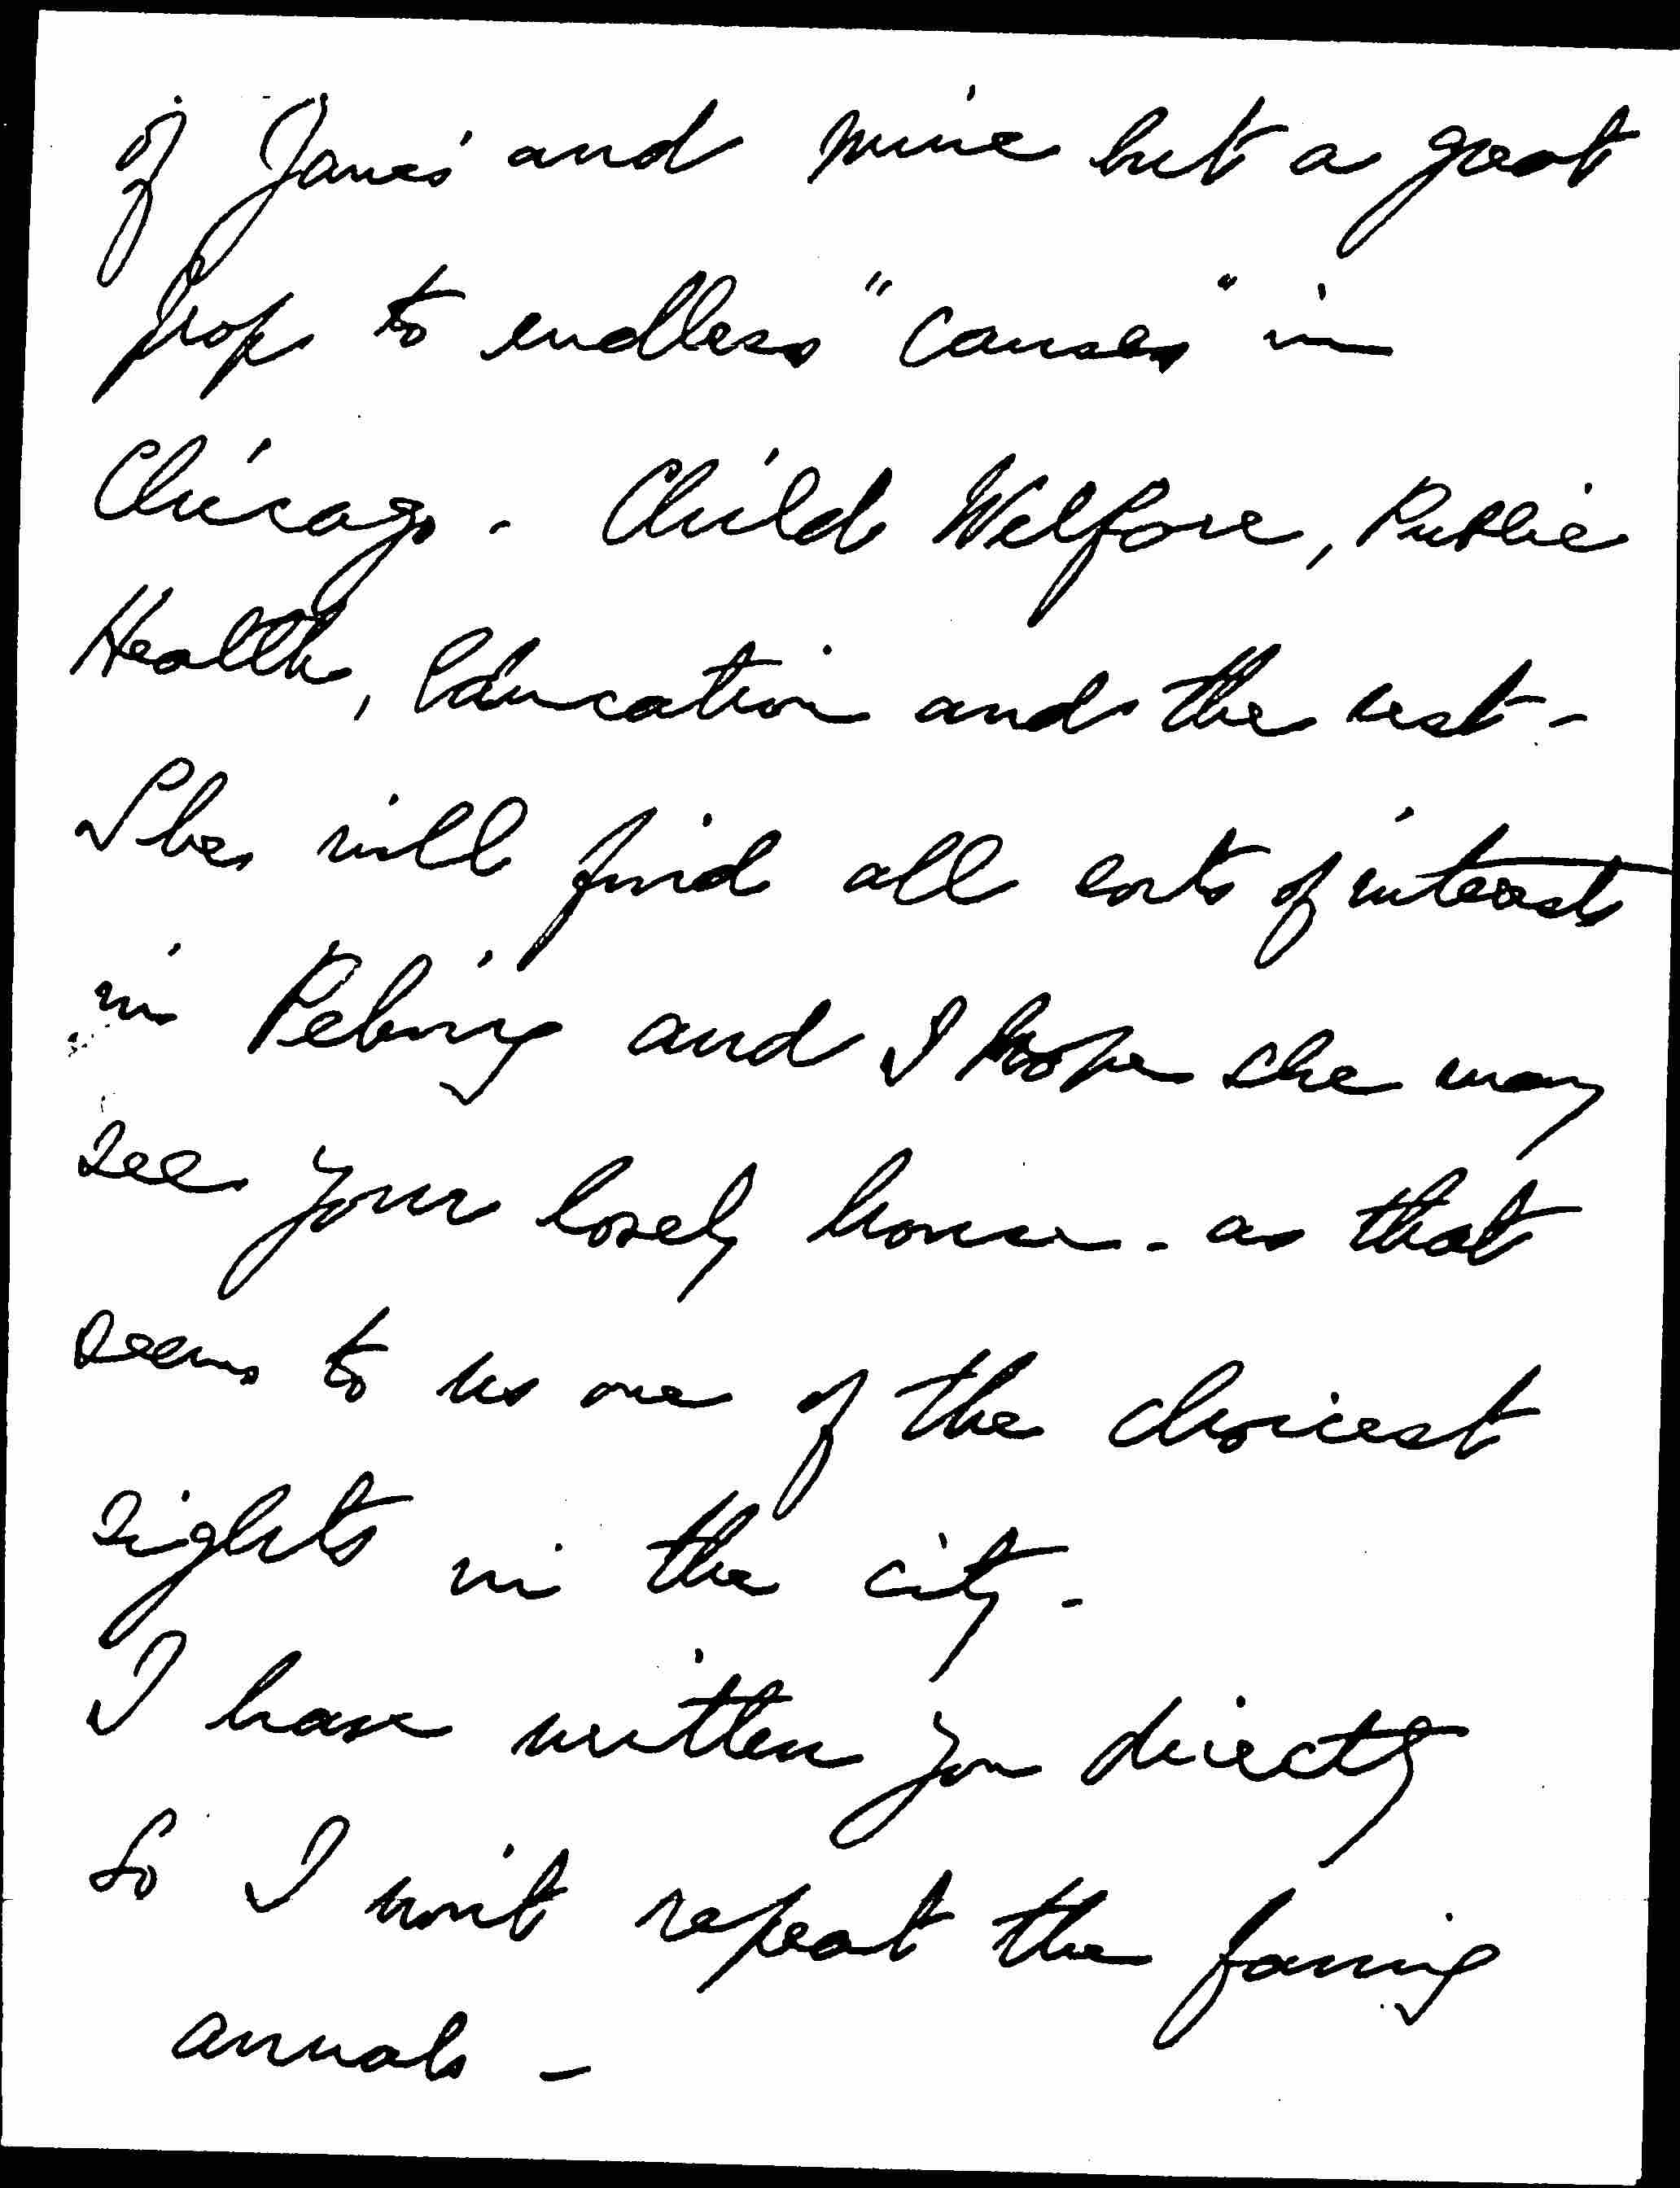 of Jane's and mine but a great
prop to endless "Causes" in
Chicago - Child Welfare, Public
Health, Education and the rest -
She will find all sorts of interest
in Peking and I hope she may
see your lovely house - as that
seems to us one of the choicest
sights in the city -
I have written you directly
so I won't repeat the
annals -